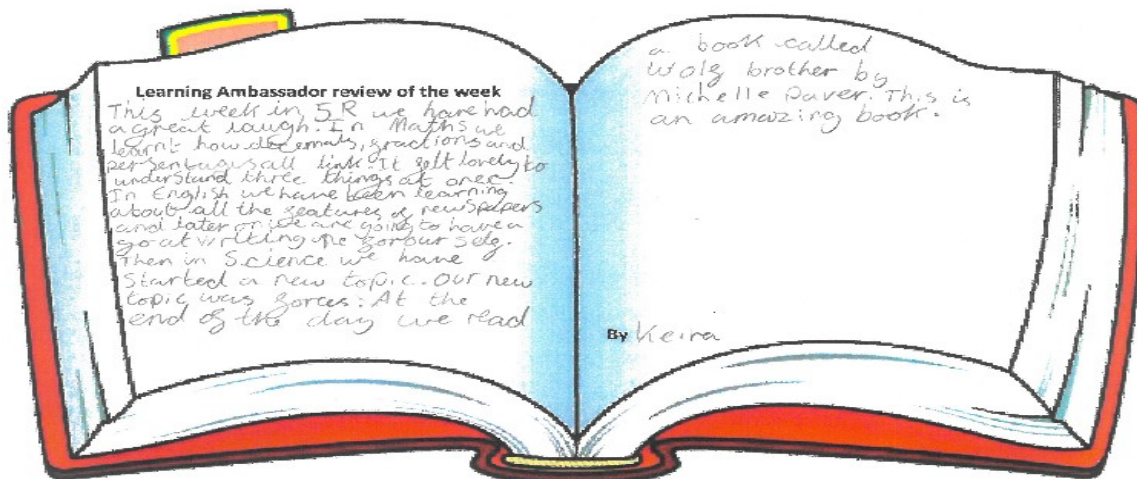 Learning Ambassador review of the week
This week in 5R we have had
a great laugh. In Maths we
learnt how decemals, fractions and
persentages all link. It felt lovely to
understand three things at once.
In English we have been learning
about all the features of newspapers
and later on we are going to have a
go at writing one for our self.
Then in Science we have
started a new topic. Our new
topic was forces. At the
end of the day we read
a book called
Wolf brother by
Michelle Paver. This is
an amazing book.
By Keira